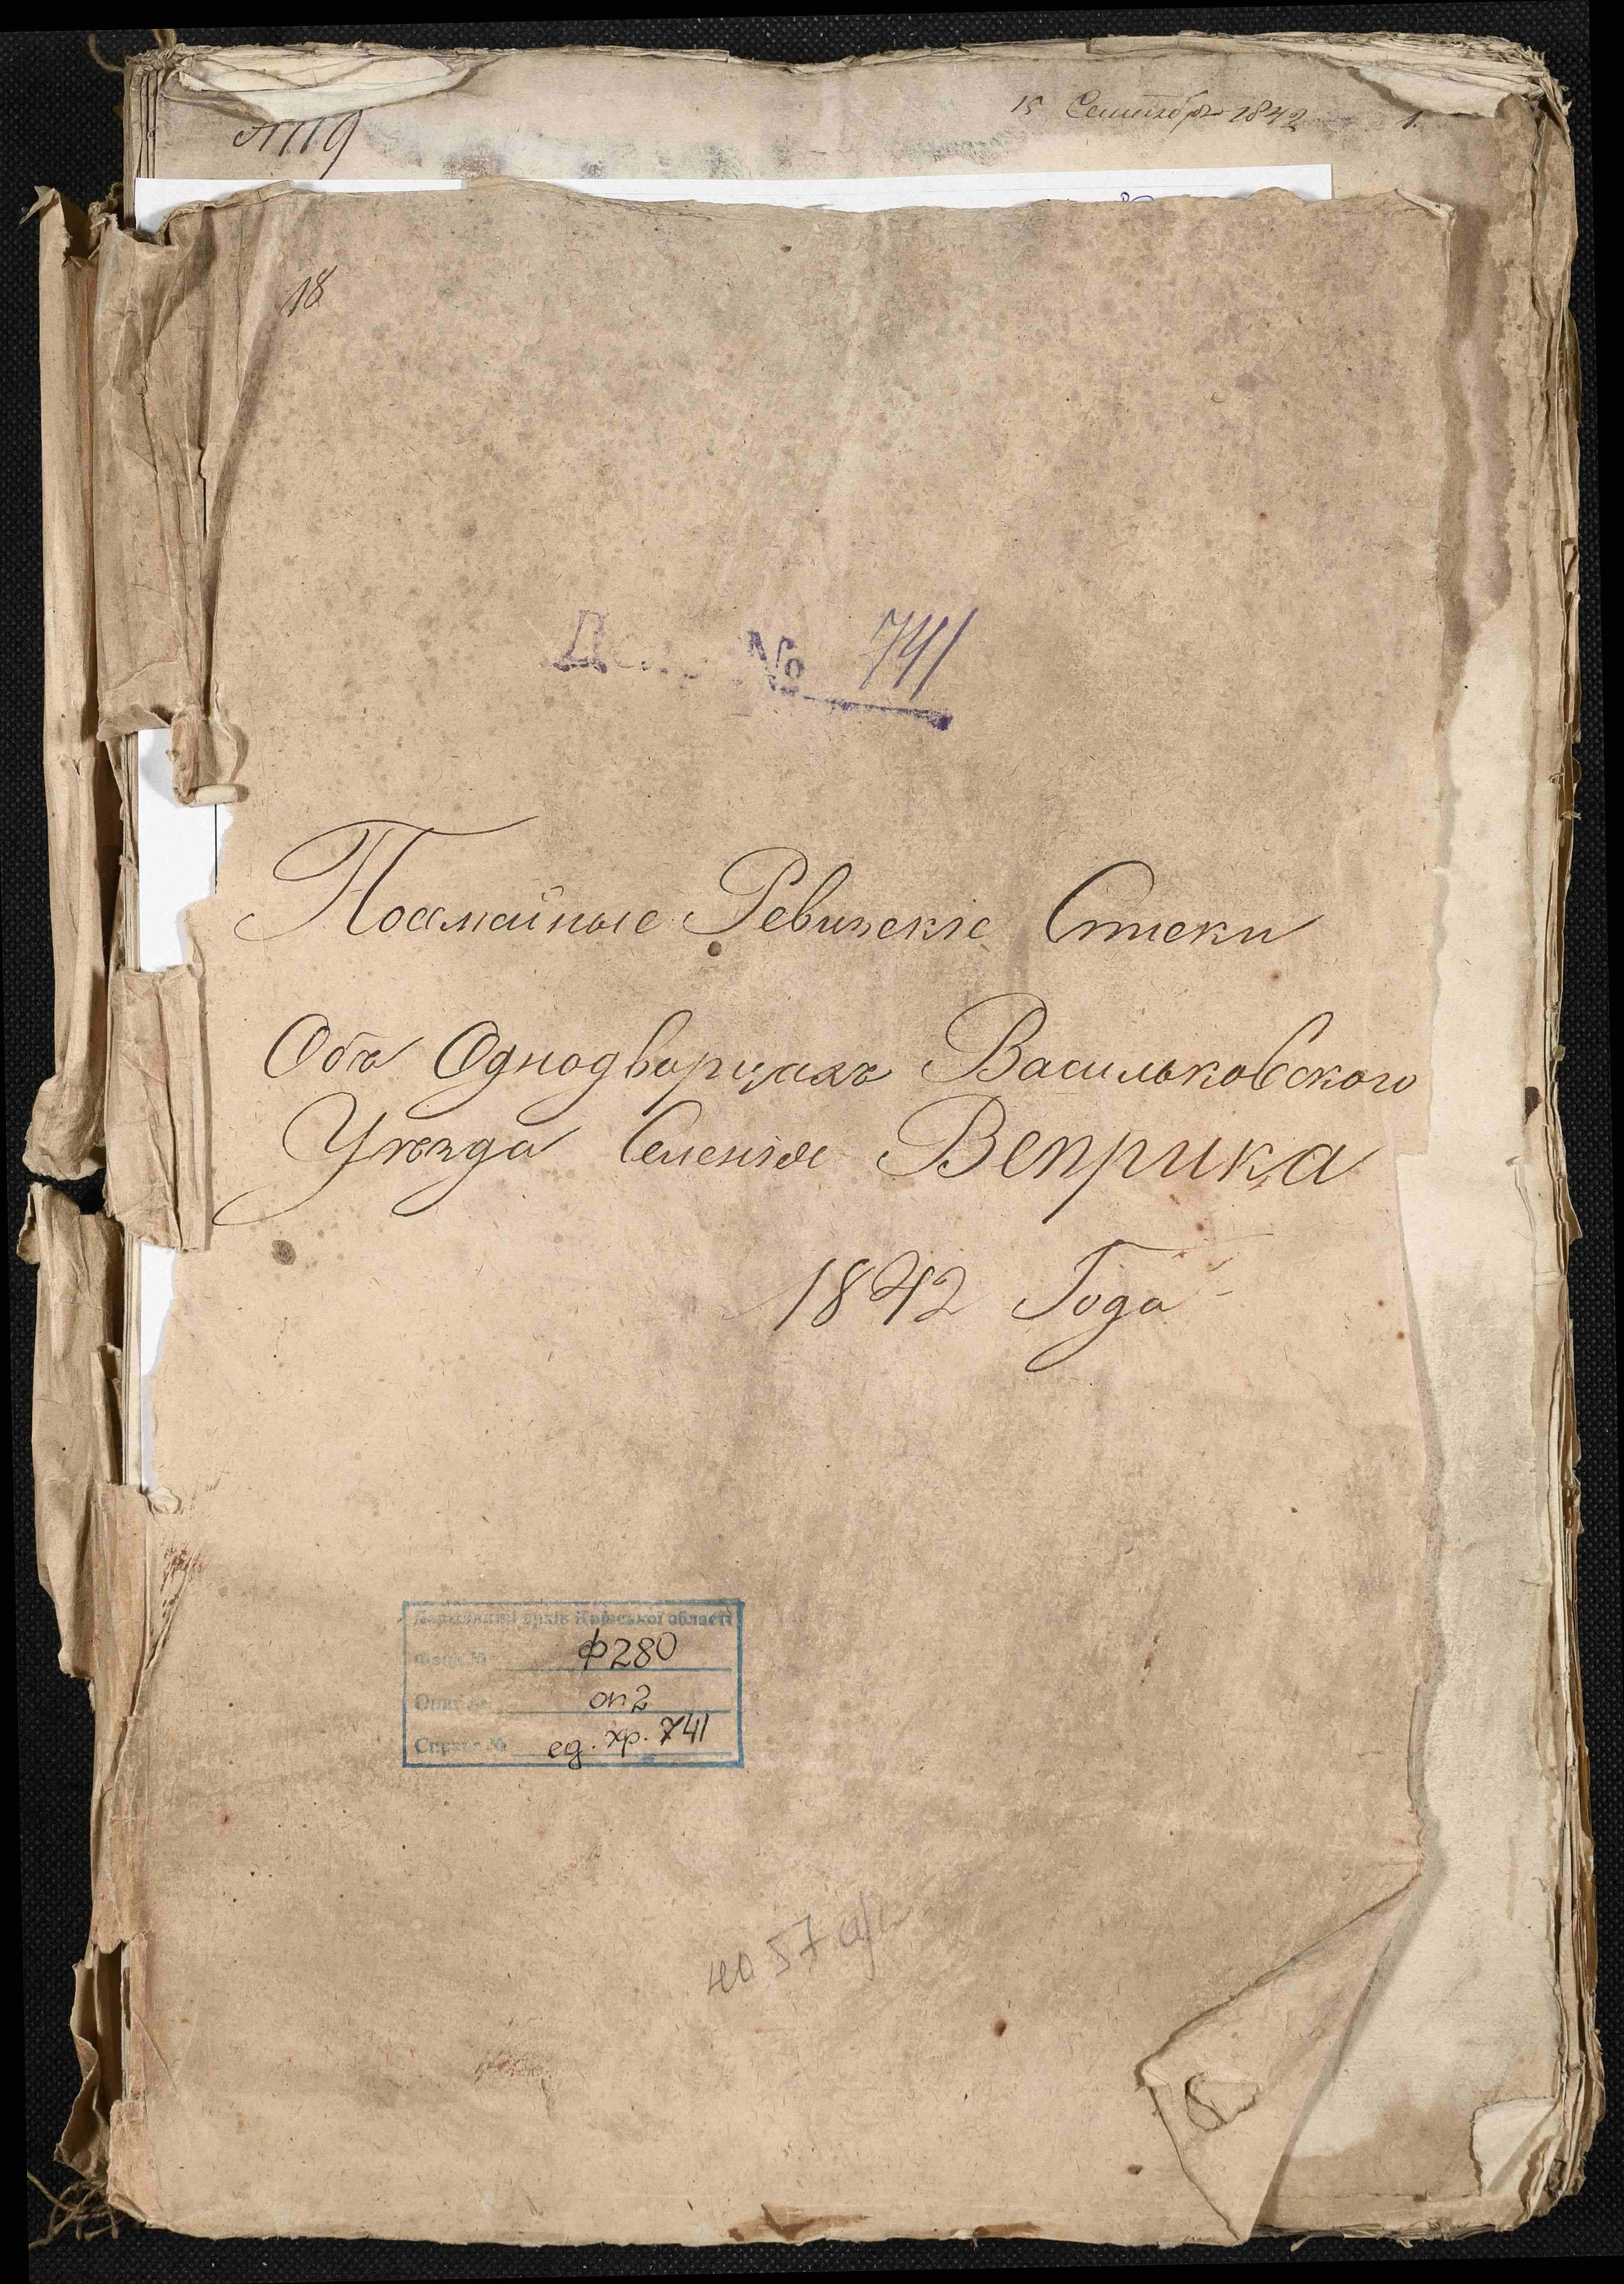 15 Сентября 1842
1.
№ 119
18
Дело № 741
Посемейные Ревизскіе Списки
Объ Однодворцахъ Васильковского
Уѣзда Селенія Веприка
1842 Года
Державний архів Київської області
Фонд № ф280
Опис № оп2
Справа № ед. хр. 741
4057